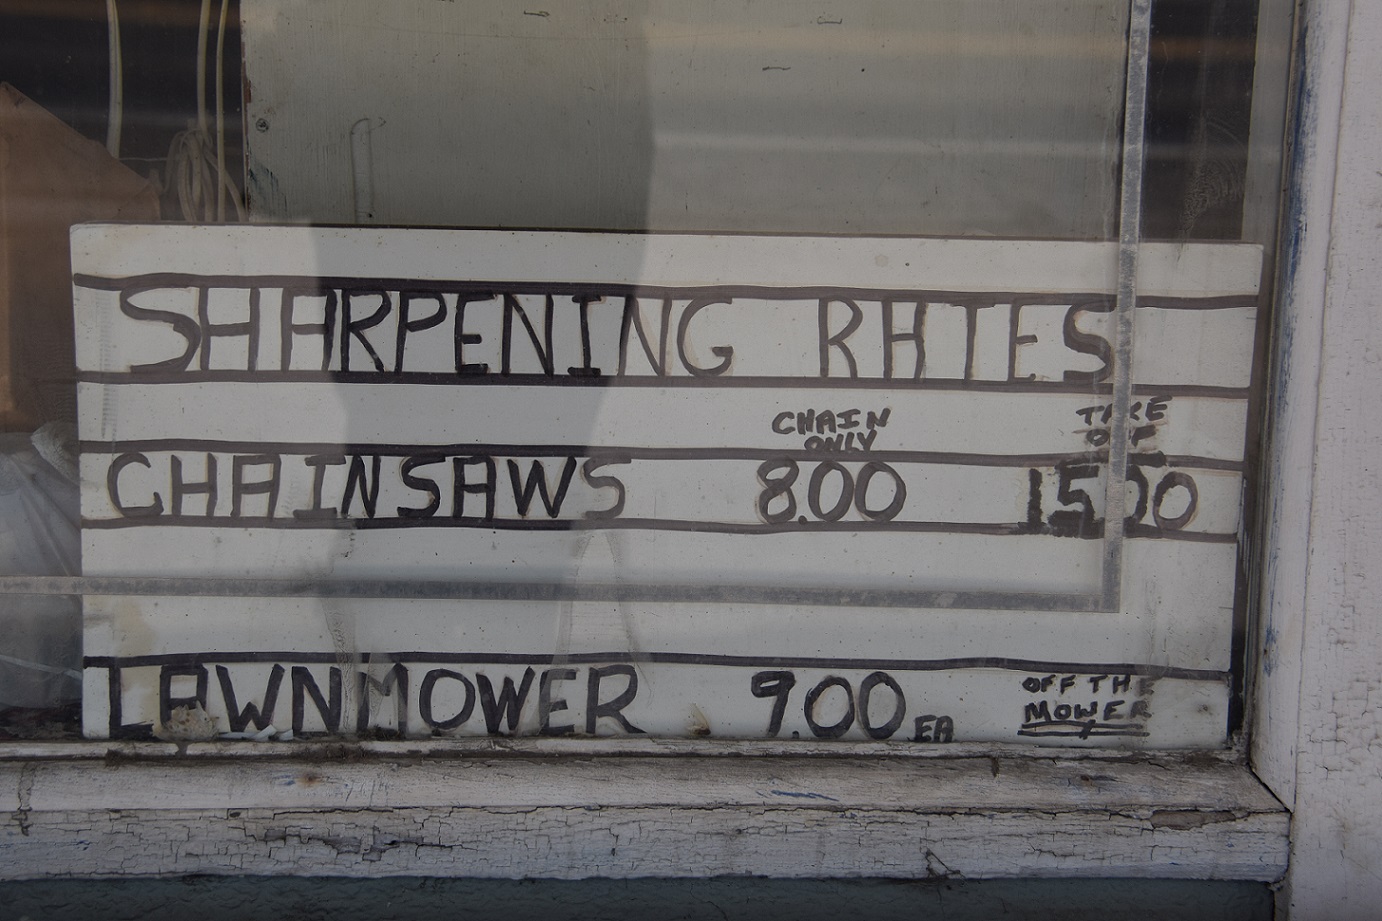 SHARPENING RATES
CHAIN ONLY
TAKE OFF
CHAINSAWS 8.00 15.00
LAWNMOWER 9.00 EA OFF THE
MOWER